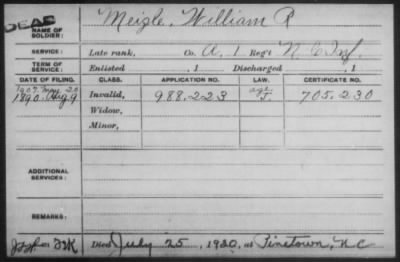 DEAD
NAME OF SOLDIER: Meigle, William R
SERVICE: Late rank, Co. A, 1 Reg't N.C. Inf.
TERM OF SERVICE: Enlisted , 1 Discharged , 1
DATE OF FILING. CLASS. APPLICATION NO. LAW. CERTIFICATE NO.
1907. May 20
1890. Aug 9 Invalid, 988.223 age J 705.230
Widow,
Minor,
ADDITIONAL SERVICES:
REMARKS:
Died July 25, 1920, at Pinetown, N.C.